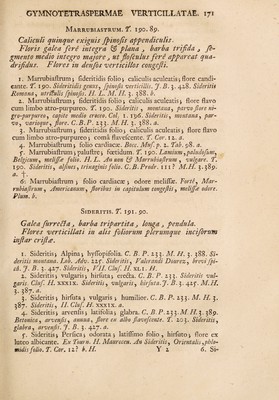 GYMNOTETRASPERMAE VERTICILLATAE. 171
MARRUBIASTRUM. T. 190. 89.
Caliculi quinque exiguis spinosis appendiculis.
Floris galea ferè integrâ & planâ, barba trifida, segmento
medio integro majore, ut flosculus ferè appareat quadrifidus.
Flores in densis verticillis congesti.
1. Marrubiastrum; sideritidis folio; caliculis aculeatis; flore candicante.
T. 190. Sideritidis genus, spinosis verticillis. J. B. 3. 428. Sideritis
Romana, verticillis spinosis. H. L. M. H. 3. 388. b.
2. Marrubiastrum; sideritidis folio; caliculis aculeatis; flore flavo
cum limbo atro-purpureo. T. 190. Sideritis, montana, parvo flore nigro-purpureo,
capite medio croceo. Col. 1. 196. Sideritis, montana, parvo,
varioque, flore. C. B. P. 233. M. H. 3. 388. a.
3. Marrubiastrum; sideritidis folio; caliculis aculeatis; flore flavo
cum limbo atro-purpureo; comâ flavescente. T. Cor. 12. a.
4. Marrubiastrum; folio cardiacæ. Bocc. Mus. p. 2. Tab. 98. a.
5. Marrubiastrum; palustre; fœtidum. T. 190. Lamium, paludosum,
Belgicum, melissæ folio. H. L. An non & Marrubiastrum, vulgare. T.
190. Sideritis, alsines, trixaginis folio. C. B. Prodr. 111? M. H. 3. 389.
a. †.
6. Marrubiastrum; folio cardiacæ; odore melissæ. Fortè, Marrubiastrum,
Americanum, floribus in capitulum congestis, melissæ odore.
Plum. b.
SIDERITIS. T. 191. 90.
Galea surrecta, barba tripartita, longa, pendula.
Flores verticillati in alis foliorum plerumque incisorum
instar cristæ.
1. Sideritis; Alpina; hyssopifolia. C. B. P. 233. M. H. 3. 388. Sideritis
montana. Lob. Adv. 225. Sideritis, Valerandi Dourez, brevi spicâ.
J. B. 3. 427. Sideritis, VII. Clus. H. XLI. H.
2. Sideritis; vulgaris; hirsuta; erecta. C. B. P. 233. Sideritis vulgaris
Clus. H. XXXIX. Sideritis, vulgaris, hirsuta. J. B. 3. 425. M. H.
3. 387. a.
3. Sideritis; hirsuta; vulgaris; humilior. C. B. P. 233. M. H. 3.
387. Sideritis, II. Clus. H. XXXIX. a.
4. Sideritis; arvensis; latifolia; glabra. C. B. P. 233. M. H. 3. 389.
Betonica, arvensis, annua, flore ex albo flavescente. T. 203. Sideritis,
glabra, arvensis. J. B. 3. 427. a.
5. Sideritis; Persica; odorata; latissimo folio, hirsuto; flore ex
luteo albicante. Ex Tourn. H. Maurocen. An Sideritis, Orientalis, phlomidis
folio. T. Cor. 12? b. H.
Y 2
6. Si-